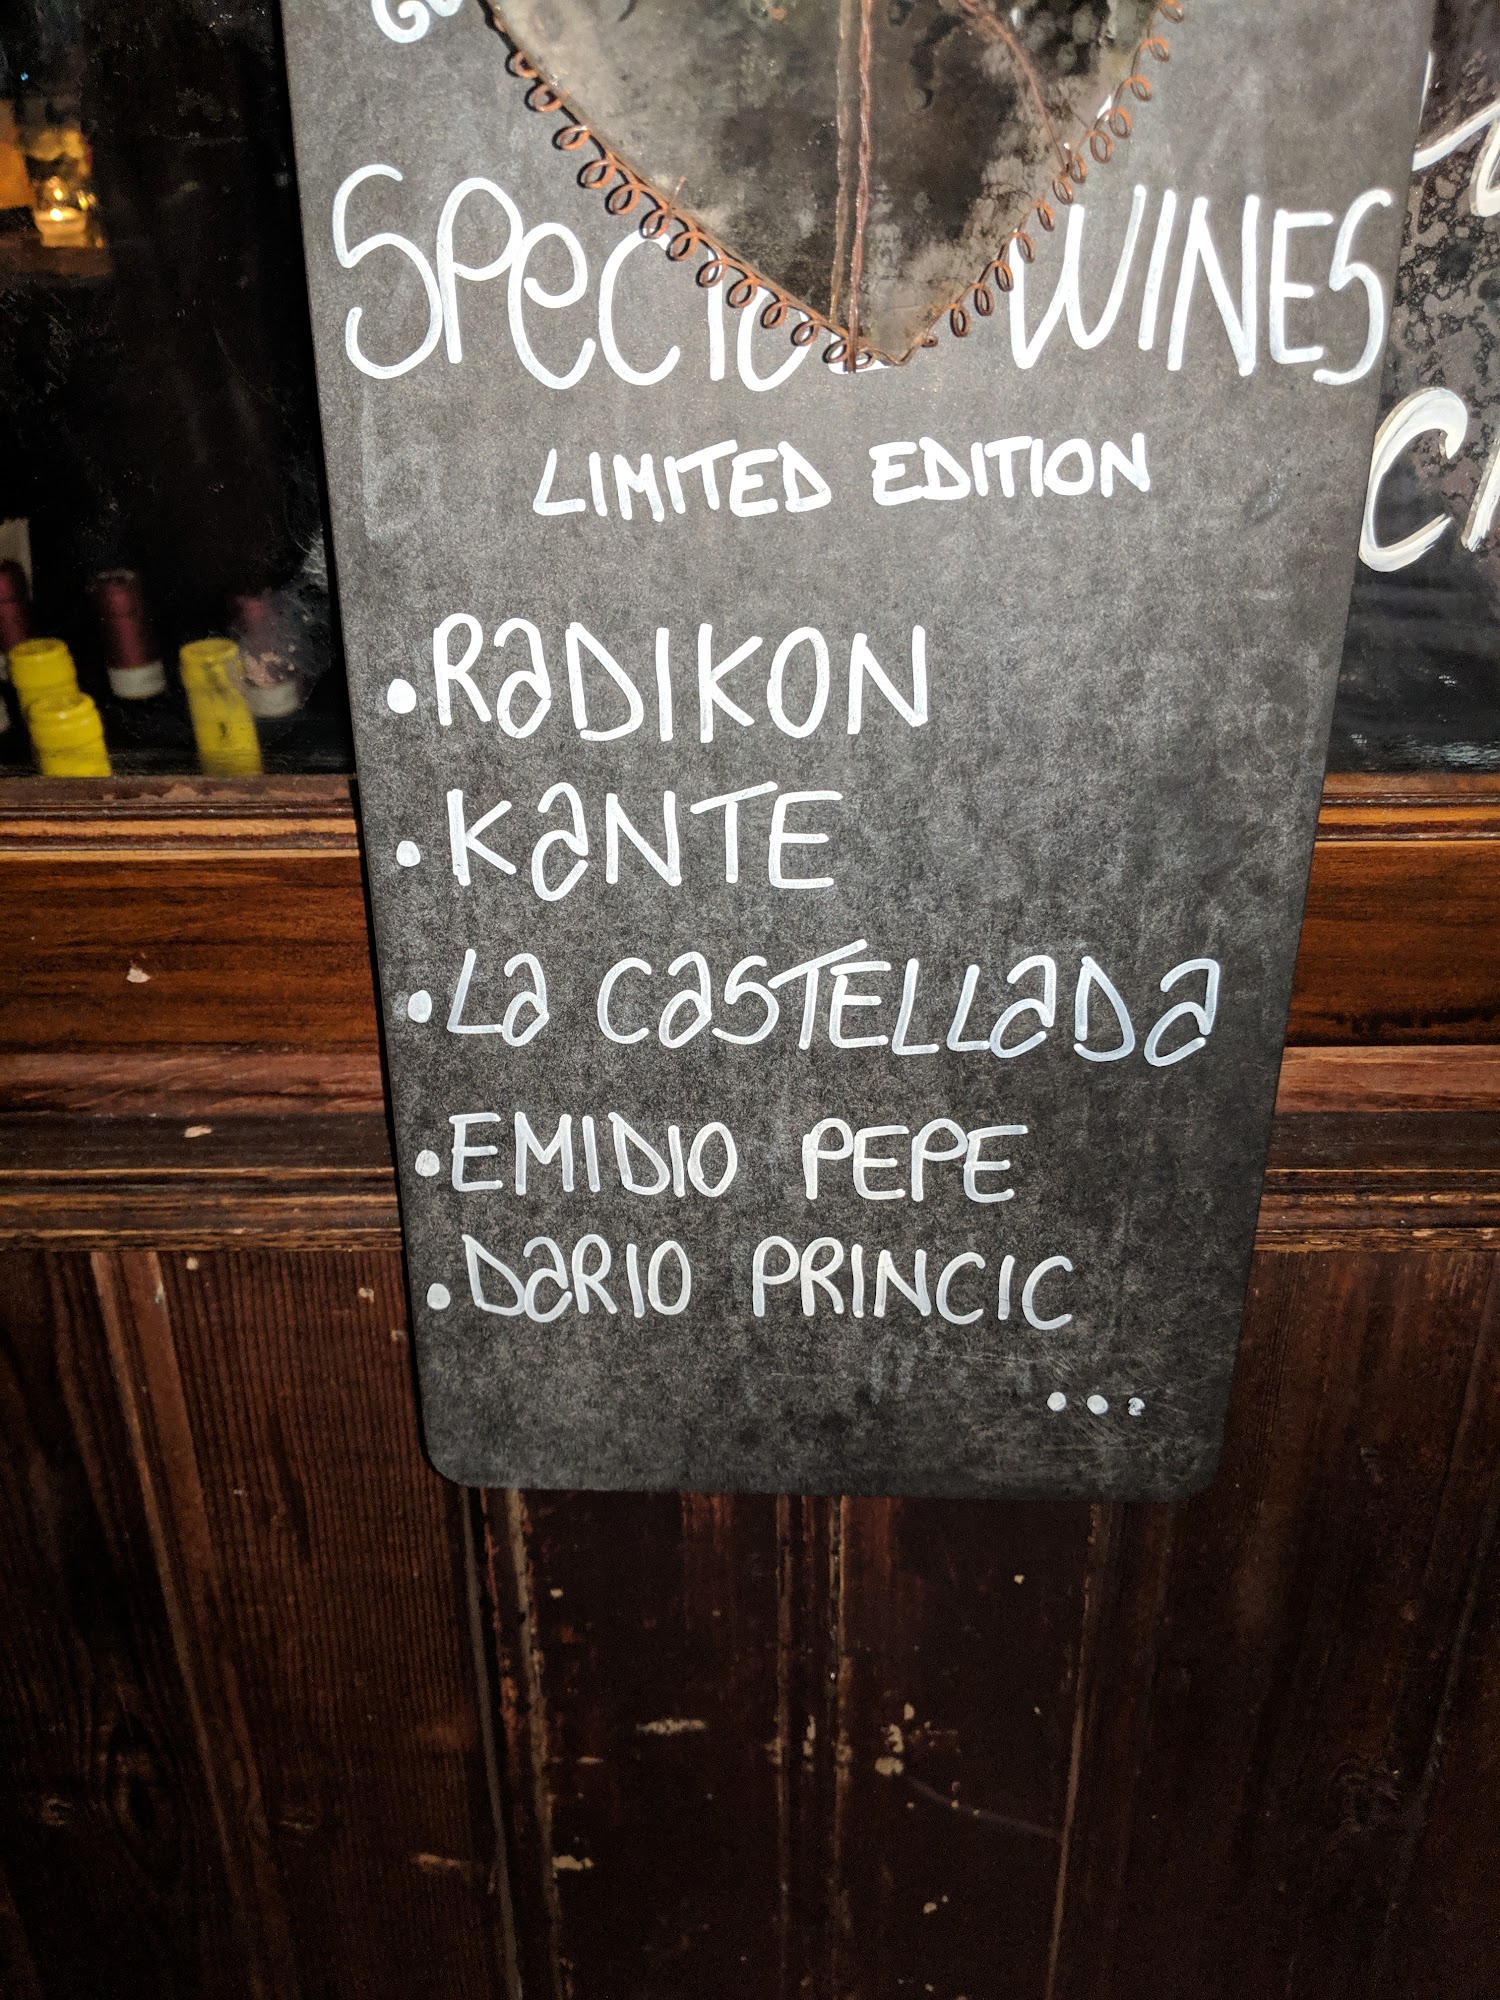 Special WINES
LIMITED EDITION
• RaDIKON
• KaNTE
• La CaSTELLaDa
• EMIDIO PEPE
• DaRIO PRINCIC
...